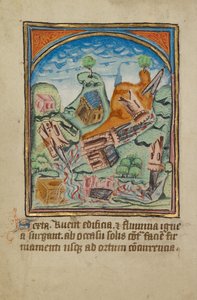 Sexta. Ruent edificia. & fulmina igne
a surgent. ab occasu solis cont faciē fir
mamenti usq; ad ortum concurrencia.